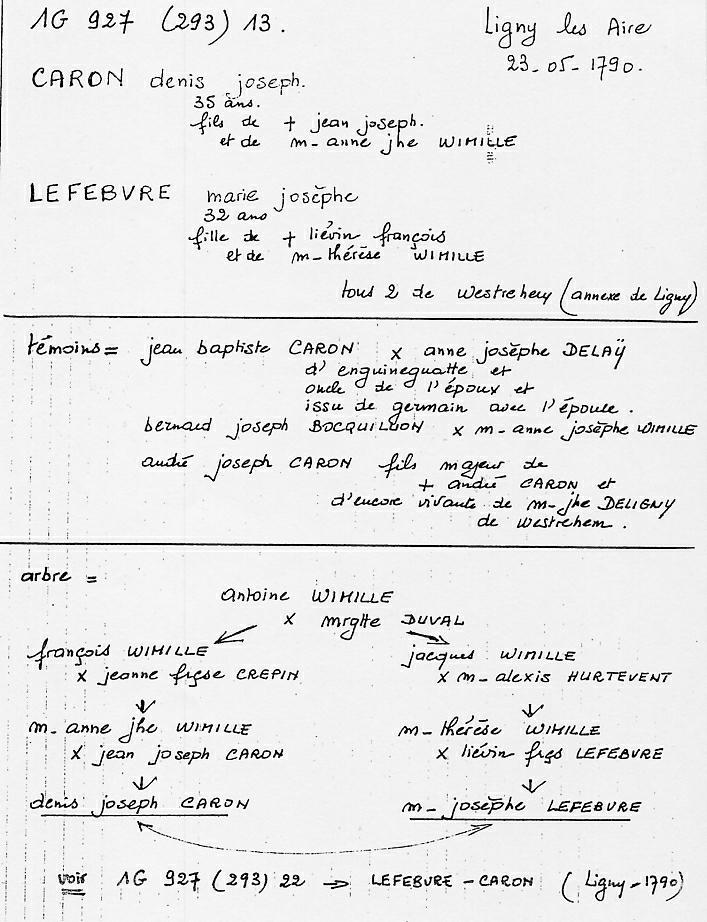 1G 927 (293) 13.
Ligny les Aire
23-05-1790.
CARON denis joseph.
35 ans.
fils de + jean joseph.
et de m-anne jhe WIMILLE
LEFEBVRE marie josèphe
32 ans
fille de + liévin françois
et de m-thérèse WIMILLE
tous 2 de Westrehem (annexe de Ligny)
témoins = jean baptiste CARON x anne josèphe DELAŸ
d'enguinegatte et
oncle de l'époux et
issu de germain avec l'épouse.
bernard joseph BOCQUILLION x m-anne josèphe WIMILLE
andré joseph CARON fils majeur de
+ andré CARON et
d'encore vivante de m-jhe DELIGNY
de Westrehem.
arbre =
Antoine WIMILLE
x mrgtte DUVAL
françois WIMILLE
x jeanne frçse CREPIN
jacques WIMILLE
x m-alexis HURTEVENT
m-anne jhe WIMILLE
x jean joseph CARON
m-thérèse WIMILLE
x liévin frçs LEFEBVRE
denis joseph CARON
m-josèphe LEFEBVRE
voir 1G 927 (293) 22 → LEFEBVRE-CARON (Ligny-1790)